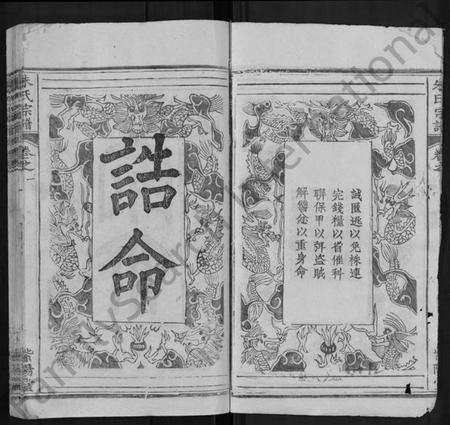 誡匿逃以免株連
完錢糧以省催科
聯保甲以弭盜賊
解讐忿以重身命
誥命
朱氏宗譜
朱氏宗譜
FamilySearch International